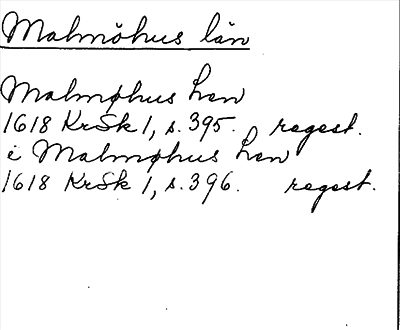 Malmöhus län
Malmøhus Len
1618 KrSk 1, s. 395. regest.
i Malmøhus Len
1618 KrSk 1, s. 396. regest.